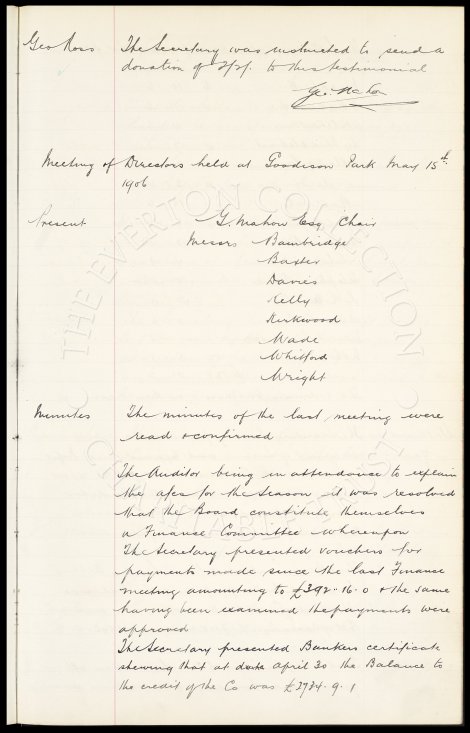 Geo Ross The Secretary was instructed to send a
donation of 2/2/. to this testimonial
Geo. Mahon
Meeting of Directors held at Goodison Park May 15th
1906
Present G. Mahon Esq Chair
Messrs Bainbridge
Baxter
Davies
Kelly
Kirkwood
Wade
Whitford
Wright
Minutes The minutes of the last meeting were
read & confirmed
The Auditor being in attendance to explain
the a/cs for the Season it was resolved
that the Board constitute themselves
a Finance Committee whereupon
The Secretary presented vouchers for
payments made since the last Finance
meeting amounting to £392.16.0 & the same
having been examined the payments were
approved
The Secretary presented Bankers certificate
shewing that at date April 30 the Balance to
the credit of the Co was £3734.9.1
THE EVERTON COLLECTION
CHARITABLE TRUST